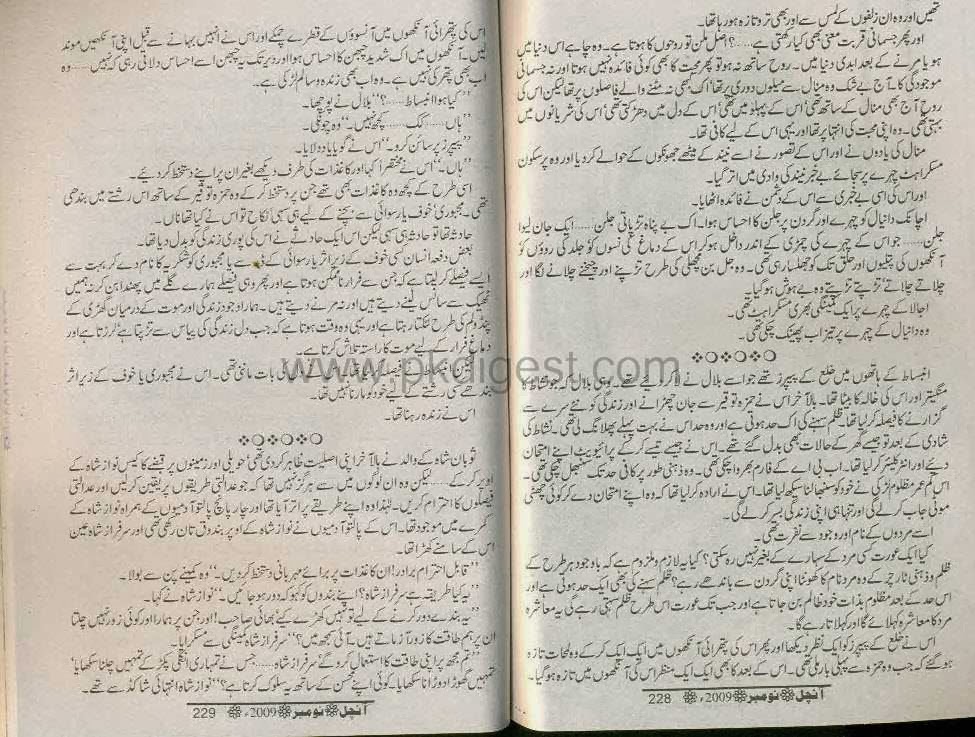 تھیں اور وہ ان زلفوں کے لمس سے اور بھی تروتازہ ہو رہا تھا۔
اور پھر جسمانی قربت معنی بھی کیا رکھتی ہے……؟ اصل ملن تو روحوں کا ہوتا ہے۔ وہ چاہے اس دنیا میں
ہو یا مرنے کے بعد ابدی دنیا میں۔ روح ساتھ نہ ہو تو پھر محبت کا بھی کوئی فائدہ نہیں ہوتا اور نہ جسمانی
موجودگی کا۔ آج بے شک وہ منال سے میلوں دوری پر تھا اک کبھی نہ مٹنے والے فاصلوں پر تھا لیکن اس کی
روح آج بھی منال کے ساتھ تھی اس کے پہلو میں تھی اس کے دل میں دھڑکتی تھی اس کی شریانوں میں
بہتی تھی۔ وہ اپنی محبت کی انتہا پر تھا اور یہی اس کے لیے کافی تھا۔
منال کی یادوں نے اور اس کے تصور نے اسے نیند کے میٹھے جھونکوں کے حوالے کر دیا اور وہ پرسکون
مسکراہٹ چہرے پر سجائے بے خبر نیند کی وادی میں اتر گیا۔
اور اس کی اسی بے خبری سے اس کے دشمن نے فائدہ اٹھایا۔
اچانک دانیال کو چہرے اور گردن پر جلن کا احساس ہوا۔ اک بے پناہ تڑپاتی جلن…… ایک جان لیوا
جلن…… جو اس کے چہرے کی چمڑی کے اندر داخل ہو کر اس کے دماغ کی نسوں کو جلد کی روؤں کو
آنکھوں کی پتلیوں اور حلق تک کو جھلسا رہی تھی۔ وہ جل بن مچھلی کی طرح تڑپنے اور چیخنے چلانے لگا اور
چلاتے چلاتے تڑپتے تڑپتے وہ بے ہوش ہو گیا۔
اجالا کے چہرے پر ایک کمینگی بھری مسکراہٹ تھی۔
وہ دانیال کے چہرے پر تیزاب پھینک چکی تھی۔
انبساط کے ہاتھوں میں خلع کے پیپرز تھے جو اسے بلال نے لا کر دیئے تھے۔ وہی بلال کہ جو نشاط کا
منگیتر اور اس کی خالہ کا بیٹا تھا۔ بالآخر اس نے حمزہ توقیر سے جان چھڑانے اور زندگی کو نئے سرے سے
گزارنے کا فیصلہ کر لیا تھا۔ ظلم سہنے کی اک حد ہوتی ہے اور وہ حد اس نے بہت پہلے پھلانگ لی تھی۔ نشاط کی
شادی کے بعد تو جیسے گھر کے حالات بھی بدل گئے تھے۔ اس نے جیسے تیسے کر کے پرائیویٹ اپنے امتحان
دیئے اور انٹر کلیئر کر لیا تھا۔ اب بی اے کے فارم بھروا چکی تھی۔ وہ ذہنی طور پر کافی حد تک سنبھل چکی تھی۔
اس کم عمر مظلوم لڑکی نے خود کو سنبھالنا سیکھ لیا تھا۔ اس نے ارادہ کر لیا تھا کہ وہ اپنے امتحان دے کر کوئی چھوٹی
موٹی جاب کر لے گی اور تنہا ہی اپنی زندگی بسر کر لے گی۔
اسے مردوں کے نام اور وجود سے نفرت تھی۔
کیا ایک عورت کسی مرد کے سہارے کے بغیر نہیں رہ سکتی؟ کیا یہ لازم و ملزوم ہے کہ باوجود ہر طرح کے
ظلم و ذہنی ٹارچر کے وہ مرد نام کا کھونٹا اپنی گردن سے باندھے رہے؟ ظلم سہنے کی بھی ایک حد ہوتی ہے اور
اس حد کے بعد مظلوم بذات خود ظالم بن جاتا ہے اور جب تک عورت اس طرح ظلم سہتی رہے گی یہ معاشرہ
مرد کا معاشرہ کہلائے گا اور کہلاتا رہے گا۔
اس نے خلع کے پیپرز کو ایک نظر دیکھا اور پھر اس کی پتھرائی آنکھوں میں ایک ایک کر کے وہ لمحات تازہ
ہو گئے کہ جب وہ حمزہ سے پہلی بار ملی تھی۔ اس کے بعد کا بھی ایک ایک منظر اس کی آنکھوں میں تازہ ہو گیا۔
آنچل نومبر 2009ء 228
اس کی پتھرائی آنکھوں میں آنسوؤں کے قطرے چمکے اور اس نے انہیں بہانے سے قبل اپنی آنکھیں موند
لیں۔ آنکھوں میں اک شدید چبھن کا احساس ہوا اور دیر تک یہ چبھن اسے احساس دلاتی رہی کہ نہیں…… وہ
اب بھی پتھر کی نہیں ہے۔ وہ اب بھی زندہ و سالم لڑکی ہے۔
”کیا ہوا انبساط……؟“ بلال نے پوچھا۔
”ہاں…… کک…… کچھ نہیں۔“ وہ چونکی۔
”پیپرز پر سائن کرو۔“ اس نے گویا یاد دلایا۔
”ہاں۔“ اس نے مختصراً کہا اور کاغذات کی طرف دیکھے بغیر ان پر اپنے دستخط کر دیئے۔
اسی طرح کے کچھ وہ کاغذات بھی تھے جن پر دستخط کر کے وہ حمزہ توقیر کے ساتھ اس رشتے میں بندھی
تھی۔ مجبوری خوف یا رسوائی سے بچنے کے لیے ہی سہی نکاح تو اس نے کیا تھا ناں۔
حادثہ تھا تو حادثہ ہی سہی لیکن اس ایک حادثے نے اس کی پوری زندگی کو بدل دیا تھا۔
بعض دفعہ انسان کسی خوف کے زیر اثر یا رسوائی کے ڈر سے یا مجبوری کو شکریہ کا نام دے کر بہت سے
ایسے فیصلے کر لیتا ہے کہ جن سے فرار ناممکن ہوتا ہے اور پھر وہی فیصلے ہمارے گلے میں پھندا بن کر نہ ہمیں
ٹھیک سے سانس لینے دیتے ہیں اور نہ مرنے دیتے ہیں۔ ہمارا وجود زندگی اور موت کے درمیان گھڑی کے
پنڈولم کی طرح لٹکتا رہتا ہے اور یہی وہ وقت ہوتا ہے کہ جب دل زندگی کی پیاس سے تڑپتا ہے لرزتا ہے اور
دماغ فرار کے لیے موت کا راستہ تلاش کرتا ہے۔
لیکن انبساط نے فیصلہ کر لیا تھا کہ اسے دل کی بات ماننی تھی۔ اس نے مجبوری یا خوف کے زیر اثر
بندھے کسی رشتے کے لیے خود کو مارنا نہیں تھا۔
اس نے زندہ رہنا تھا۔
ثوبان شاہ کے والد نے بالآخر اپنی اصلیت ظاہر کر دی تھی حویلی اور زمینوں پر قبضے کا کیس نواز شاہ کے
اوپر کر کے…… لیکن وہ ان لوگوں میں سے ہرگز نہیں تھا کہ جو عدالتی طریقوں پر یقین کر لیں اور عدالتی
فیصلوں کا احترام کریں۔ لہٰذا وہ اپنے طریقے پر اتر آیا تھا اور چار پانچ پالتو آدمیوں کے ہمراہ نواز شاہ کے
کمرے میں موجود تھا۔ اس کے پالتو آدمیوں نے نواز شاہ کے اوپر بندوق تان رکھی تھی اور سرفراز شاہ عین
اس کے سامنے کھڑا تھا۔
”قابل احترام برادر! ان کاغذات پر برائے مہربانی دستخط کر دیں۔“ وہ کمینے پن سے بولا۔
”یہ کیا طریقہ ہے سرفراز شاہ؟ اپنے بندوں کو کہو کہ دور ہو جائیں۔“ نواز شاہ نے کہا۔
”یہ بندے دور کرنے کے لیے تو نہیں کھڑے کیے بھائی صاحب! اور جن پر ہمارا اور کوئی زور نہیں چلتا
ان پر ہم طاقت کا زور آزماتے ہیں۔ آئی سمجھ میں؟“ سرفراز شاہ کمینگی سے مسکرایا۔
”تم مجھ پر اپنی طاقت کا استعمال کرو گے سرفراز شاہ…… جس نے تمہاری انگلی پکڑ کے تمہیں چلنا سکھایا،
تمہیں گھوڑا دوڑانا سکھایا۔ کوئی اپنے محسن کے ساتھ یہ سلوک کرتا ہے؟“ نواز شاہ انتہائی شاکڈ سے تھے۔
آنچل نومبر 2009ء 229
www.pkdigest.com